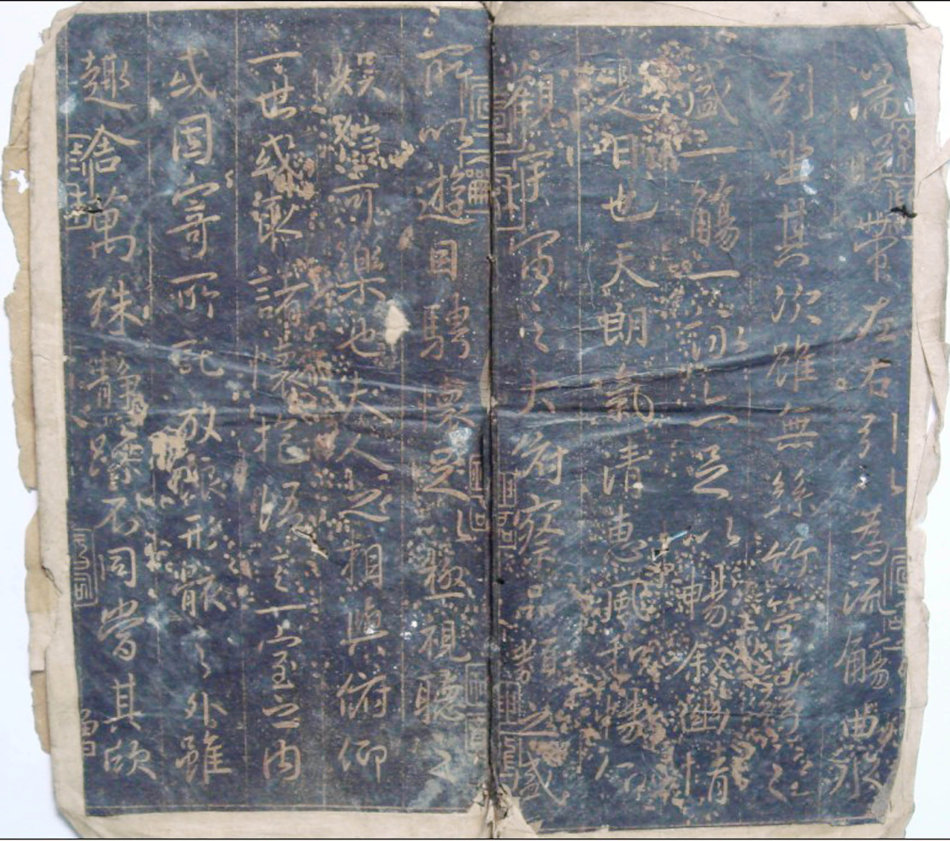 湍暎帶左右引以為流觴曲水
列坐其次雖無絲竹管弦之
盛一觴一詠亦足以暢敘幽情
是日也天朗氣清惠風和暢仰
觀宇宙之大俯察品類之盛
所以遊目騁懷足以極視聽之
娛信可樂也夫人之相與俯仰
一世或取諸懷抱悟言一室之內
或因寄所託放浪形骸之外雖
趣舍萬殊靜躁不同當其欣